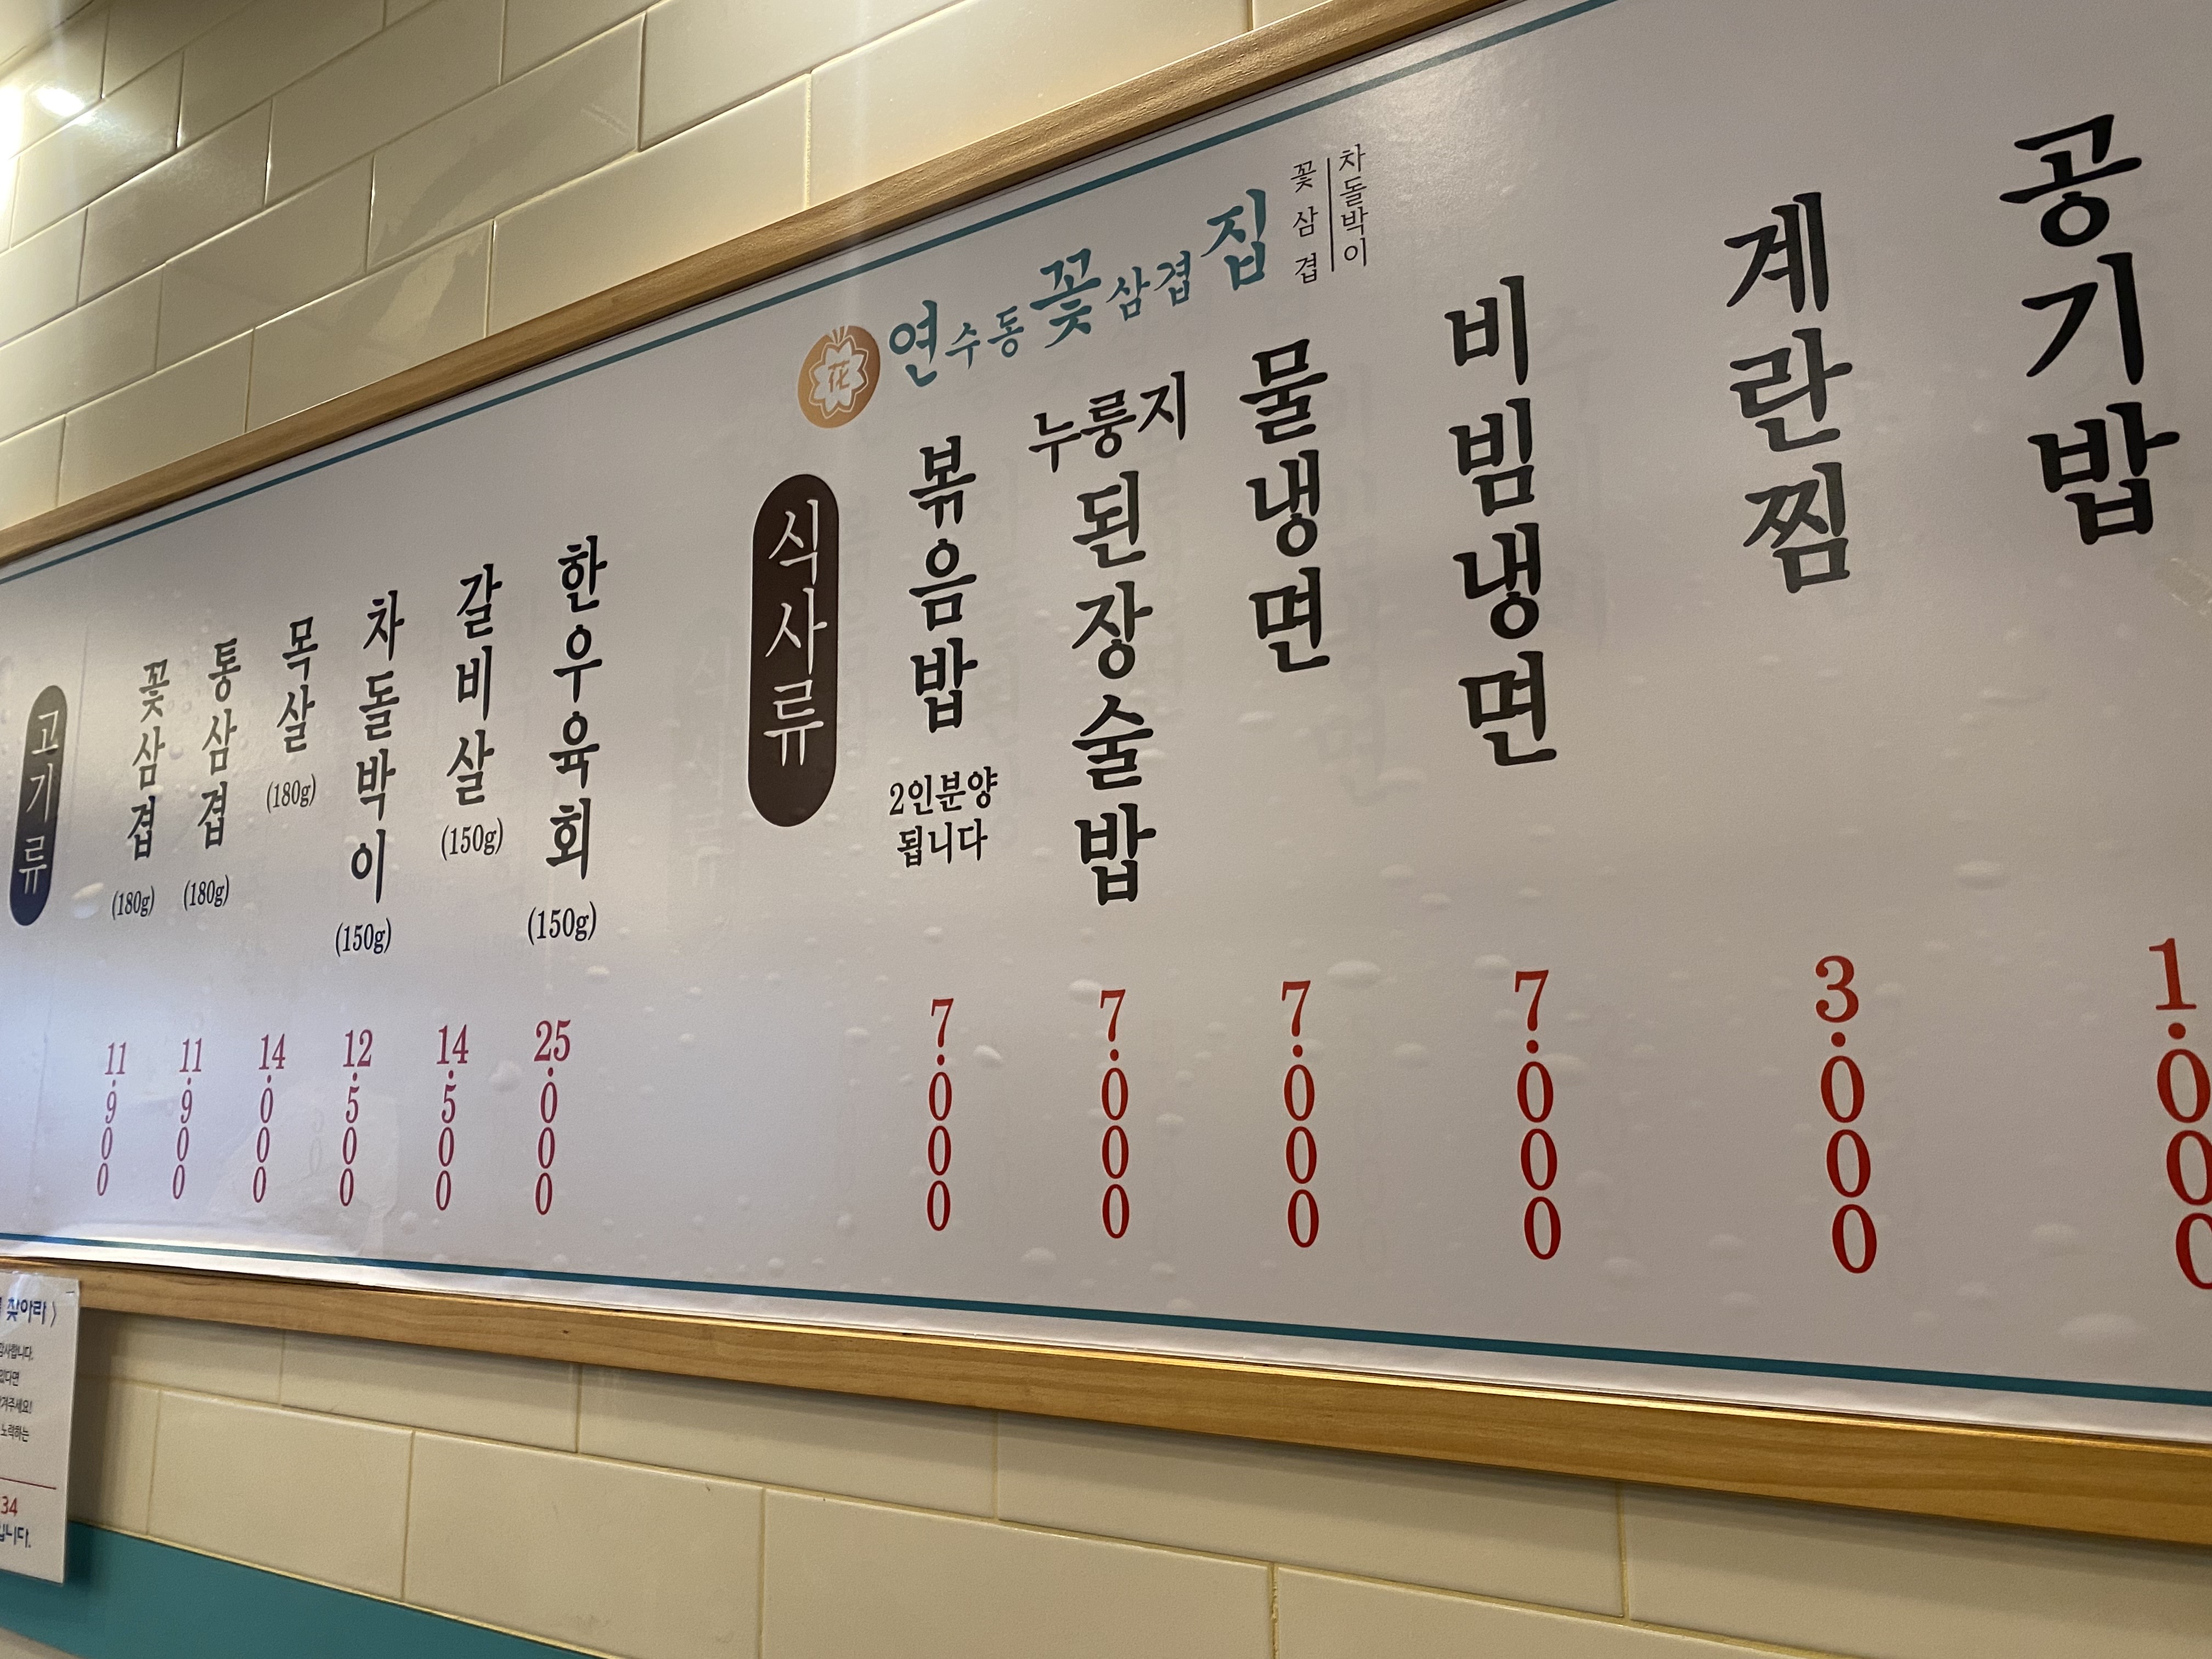 연수동꽃삼겹집
차돌박이
꽃삼겹
花
고기류
꽃삼겹 (180g) 11.900
통삼겹 (180g) 11.900
목살 (180g) 14.000
차돌박이 (150g) 12.500
갈비살 (150g) 14.500
한우육회 (150g) 25.000
식사류
볶음밥 2인분양 됩니다 7.000
누룽지 된장술밥 7.000
물냉면 7.000
비빔냉면 7.000
계란찜 3.000
공기밥 1.000
찾아라 >
감사합니다.
있다면
겨주세요!
노력하는
34
입니다.